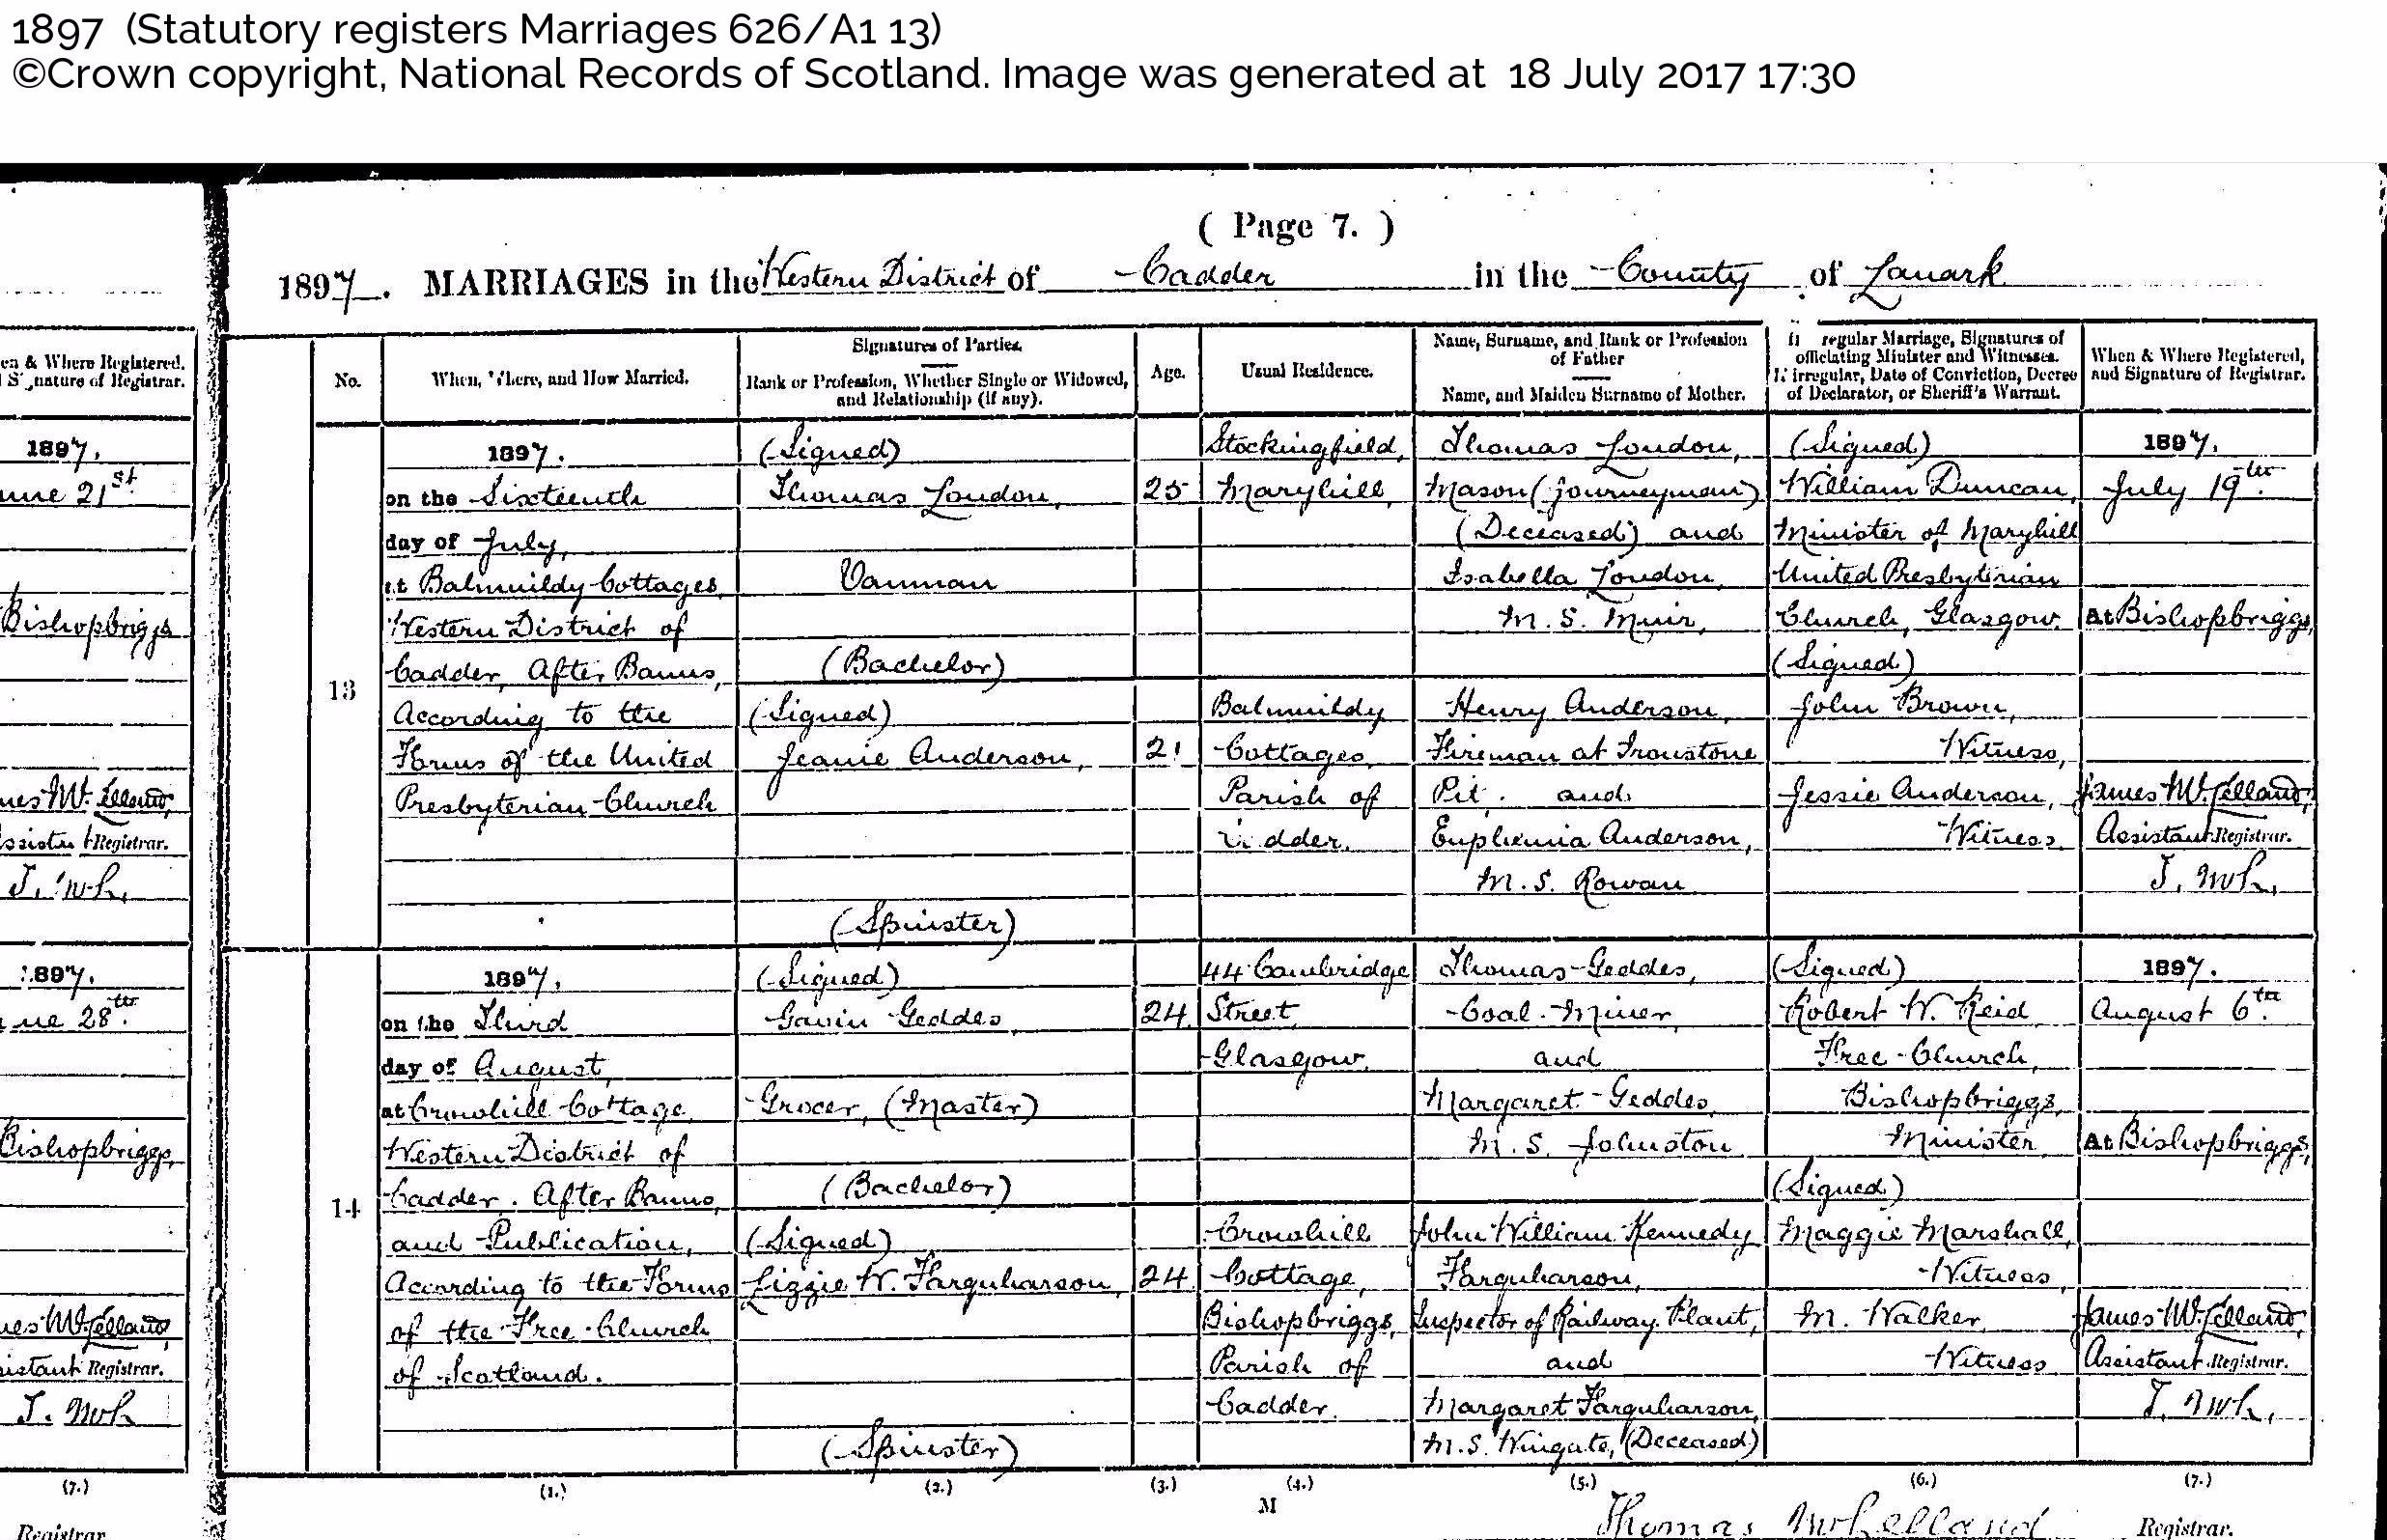 1897 (Statutory registers Marriages 626/A1 13)
©Crown copyright, National Records of Scotland. Image was generated at 18 July 2017 17:30
( Page 7. )
1897. MARRIAGES in the Western District of Cadder in the County of Lanark
No.
When, Where, and How Married.
Signatures of Parties.
Rank or Profession, Whether Single or Widowed,
and Relationship (if any).
Age.
Usual Residence.
Name, Surname, and Rank or Profession
of Father
Name, and Maiden Surname of Mother.
If regular Marriage, Signatures of
officiating Minister and Witnesses.
If irregular, Date of Conviction, Decree
of Declarator, or Sheriff's Warrant.
When & Where Registered,
and Signature of Registrar.
en & Where Registered.
Signature of Registrar.
1897.
une 21st
Bishopbriggs
Registrar.
13
1897.
on the Sixteenth
day of July,
at Balmuildy Cottages,
Western District of
Cadder, After Banns,
According to the
Forms of the United
Presbyterian Church
(Signed)
Thomas Loudon,
Vanman
(Bachelor)
(Signed)
Jeanie Anderson,
(Spinster)
25
21
Stockingfield,
Maryhill,
Balmuildy
Cottages,
Parish of
Cadder.
Thomas Loudon,
Mason (journeyman)
(Deceased) and
Isabella Loudon,
M. S. Muir,
Henry Anderson,
Fireman at Ironstone
Pit, and
Euphemia Anderson,
M. S. Rowan
(Signed)
William Duncan,
Minister of Maryhill
United Presbyterian
Church, Glasgow.
(Signed)
John Brown,
Witness,
Jessie Anderson,
Witness.
1897.
July 19th.
At Bishopbriggs,
James McLelland,
Assistant Registrar.
1897.
ne 28th.
Bishopbriggs,
Registrar.
14
1897.
on the Third
day of August,
at Crowhill Cottage,
Western District of
Cadder. After Banns,
and Publication,
According to the Forms
of the Free Church
of Scotland.
(Signed)
Gavin Geddes,
Grocer, (Master)
(Bachelor)
(Signed)
Lizzie W. Farquharson,
(Spinster)
24
24
44 Cambridge
Street,
Glasgow.
Crowhill
Cottage,
Bishopbriggs,
Parish of
Cadder.
Thomas Geddes,
Coal Miner,
and
Margaret Geddes,
M. S. Johnston
John William Kennedy
Farquharson,
Inspector of Railway Plant,
and
Margaret Farquharson,
M. S. Wingate, (Deceased)
(Signed)
Robert W. Reid
Free Church,
Bishopbriggs,
Minister
(Signed)
Maggie Marshall,
Witness
M. Walker,
Witness
1897.
August 6th.
At Bishopbriggs,
James McLelland,
Assistant Registrar.
(7.)
(1.)
(2.)
(3.)
(4.)
(5.)
(6.)
(7.)
M
Registrar
Thomas McLelland Registrar.